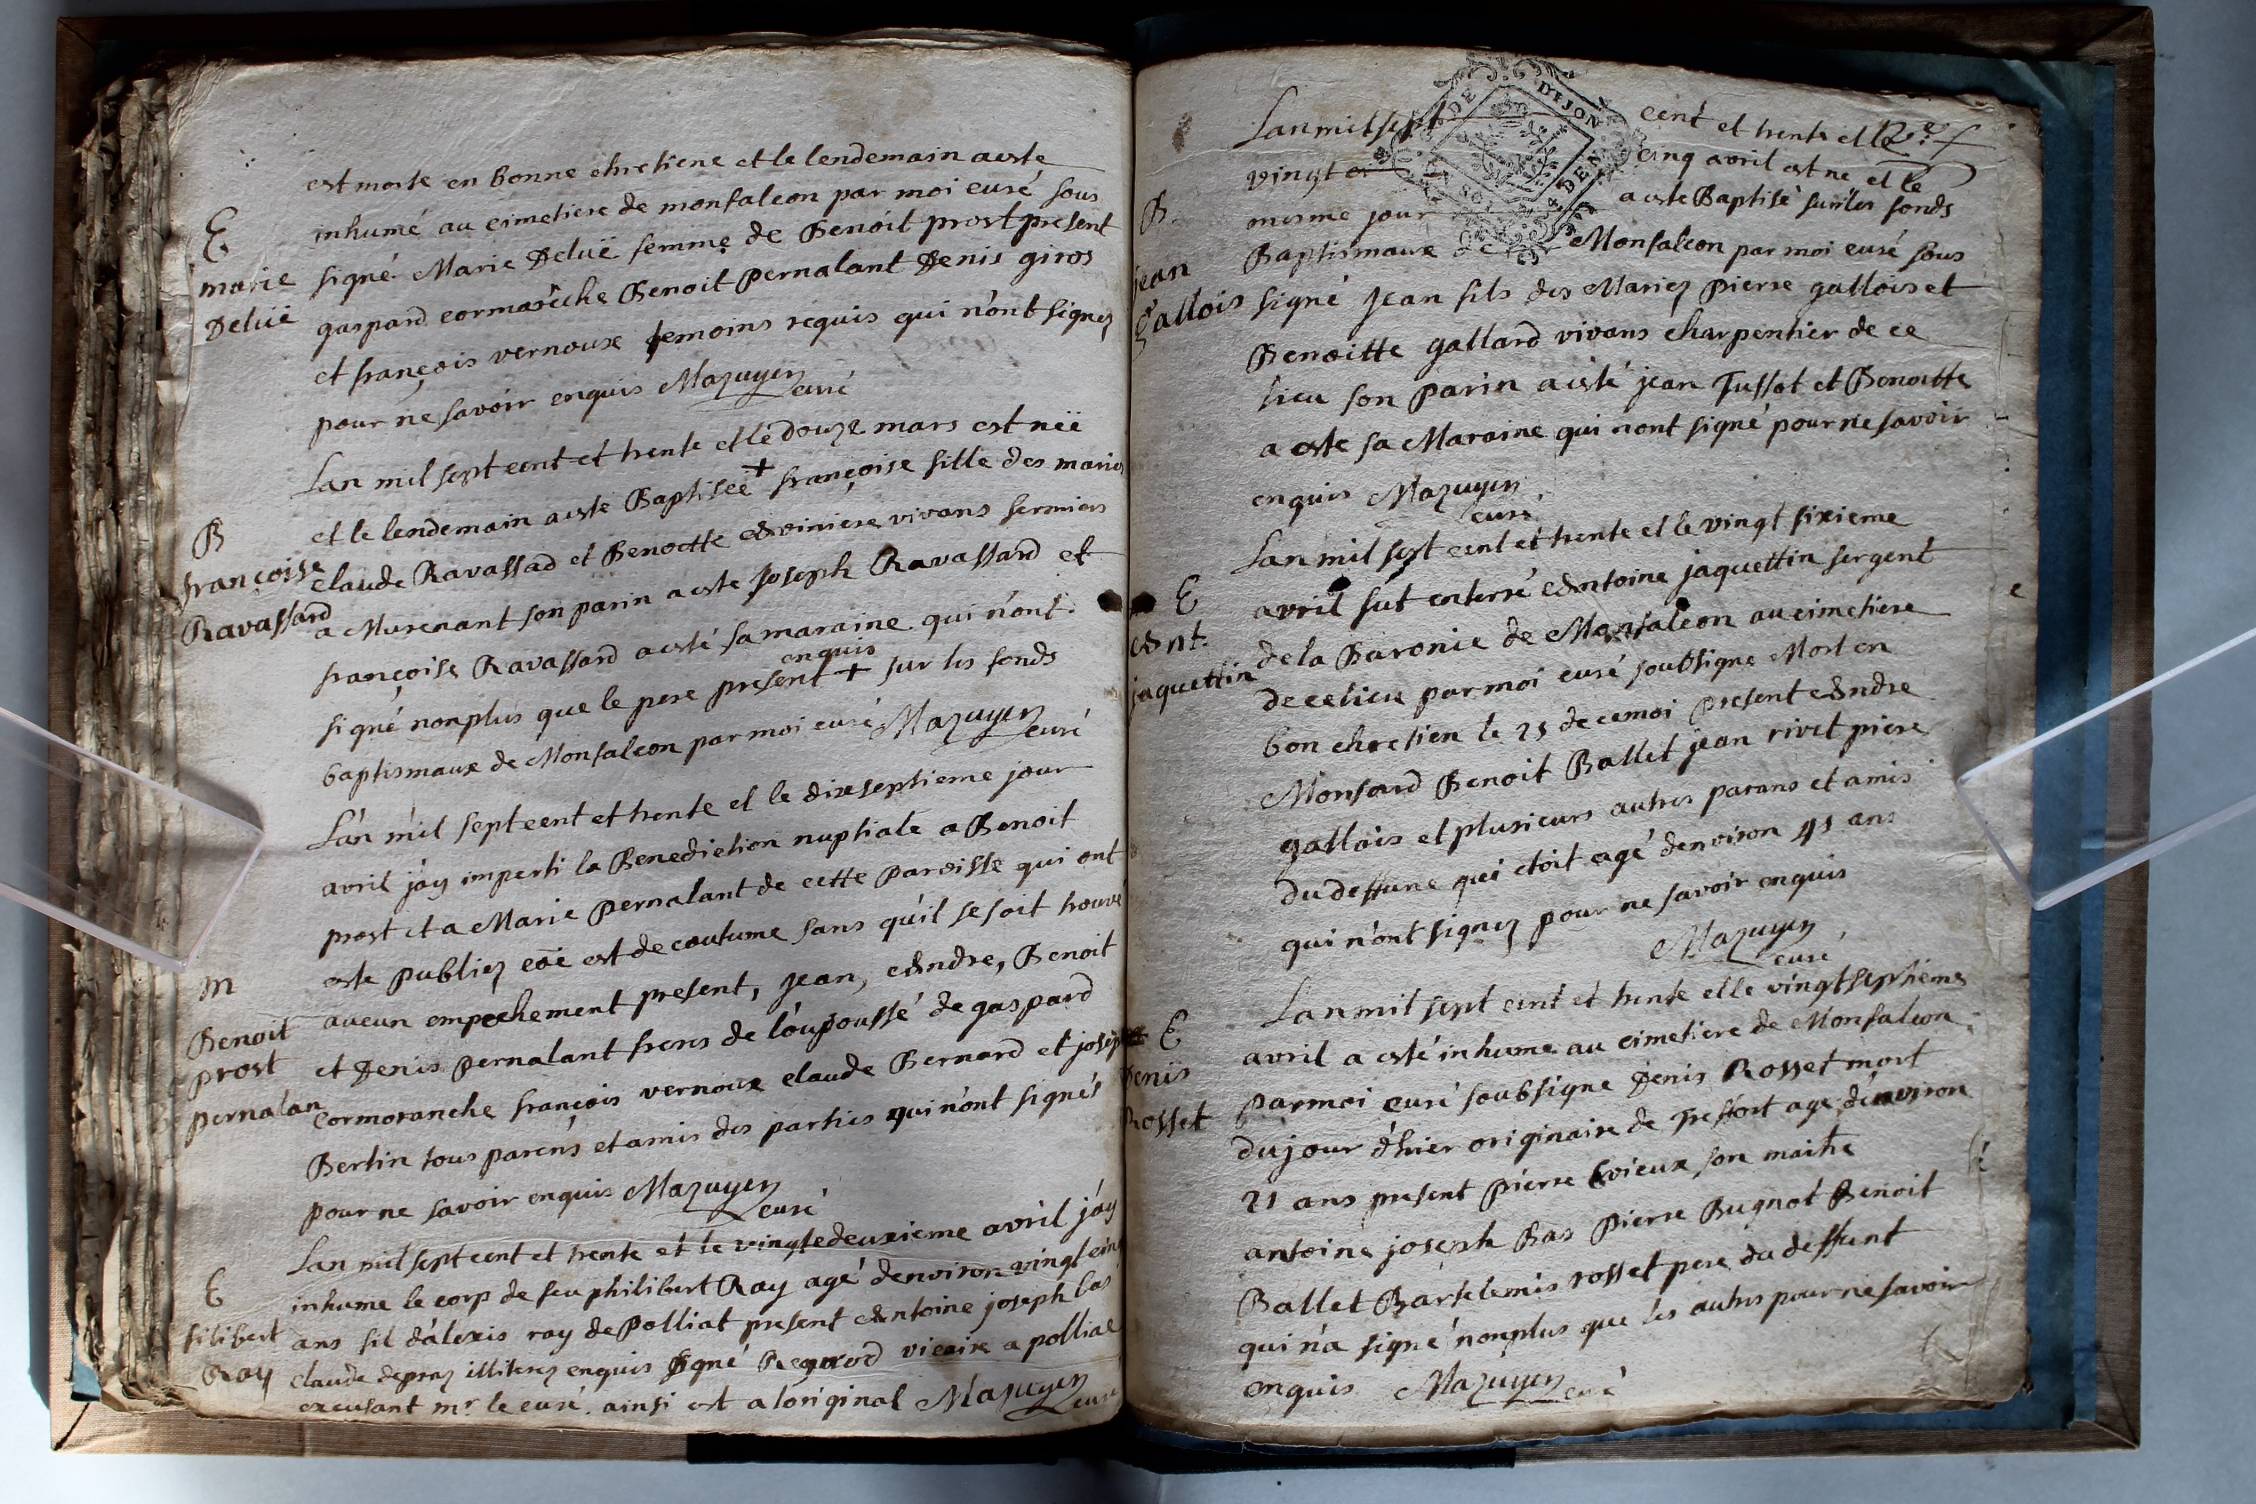 est morte en bonne chretiene et le lendemain a esté
inhumé au cimetiere de monfalcon par moi curé sous
signé Marie Deluë femme de Benoit prost present
gaspard cormarêche Benoit pernalant Denis giros
et françois vernoux temoins requis qui n'ont signez
pour ne savoir enquis Mazuyer
curé
E
marie
Deluë
Lan mil sept cent et trente et le douze mars est néë
et le lendemain a esté Baptiseë + françoise fille des mariez
claude Ravassad et Benoitte viniere vivans fermiers
a Murenant son parin a esté Joseph Ravassard et
françoise Ravassard a esté sa maraine qui n'ont
enquis
signé nonplus que le pere present + sur les fonds
baptismaux de Monfalcon par moi curé Mazuyer
curé
B
françoise
Ravassard
Lan mil sept cent et trente et le dixseptieme jour
avril j'ay imparti la Benediction nuptiale a Benoit
prost et a Marie pernalant de cette paroisse qui ont
esté publiez cõe est de coutume sans qu'il se soit trouvé
aucun empechement present, Jean, Andre, Benoit
et Denis pernalant freres de l'oupoussé de gaspard
cormoranche françois vernoux claude Bernard et joseph
Bertin tous parens et amis des parties qui n'ont signés
pour ne savoir enquis Mazuyer
curé
m
Benoit
prost
pernalan
Lan mil sept cent et trente et le vingtedeuxieme avril j'ay
inhume le corp de feu philibert Ray agé denviron vingt cinq
ans fil d'alexis ray de Polliat present Antoine joseph bas
claude depraz illiterez enquis signé vicaire a polliat
excusant mr le curé. ainsi est a loriginal Mazuyer
curé
E
filibert
Ray
Lan mil sept cent et trente et le
vingt cinq avril est ne et le
mesme jour a esté Baptisé sur les fonds
Baptismaux de Monfalcon par moi curé sous
signé Jean fils des Mariez pierre gallois et
Benoitte gallard vivans charpentier de ce
lieu son parin a esté jean Tussot et Benoitte
a este sa Maraine qui n'ont signé pour ne savoir
enquis Mazuyer
curé
B
jean
Gallois
DE DIJON
DEN
SOLS
Lan mil sept cent et trente et le vingt sixieme
avril fut enterré Antoine jaquettin sergent
de la Baronie de Monfalcon au cimetiere
de ce lieu par moi curé soubsigne Mort en
bon chretien le 25 de ce moi present Andre
Monfard Benoit Ballet jean rivet piere
gallois et plusieurs autres parans et amis
du deffunc qui etoit agé denviron 45 ans
qui n'ont signez pour ne savoir enquis
Mazuyer
curé
E
Ant.
jaquettin
Lan mil sept cent et trente et le vingt septieme
avril a esté inhume au cimetiere de Monfalcon
par moi curé soubsigne Denis Rosset mort
du jour d'hier originaire de Treffort age d'environ
21 ans present pierre son maitre
antoine joseph Bas pierre Bugnot Benoit
Ballet Bartelemis rosset pere du deffunt
qui n'a signé nonplus que les autres pour ne savoir
enquis Mazuyer curé
E
Denis
Rosset